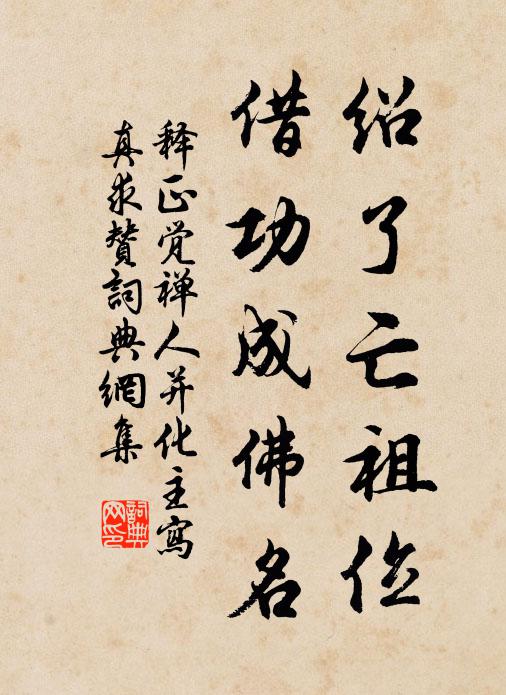 绍了亡祖位
借功成佛名
释正觉禅人并化主寫
真求赞詞典網集
詞典网印